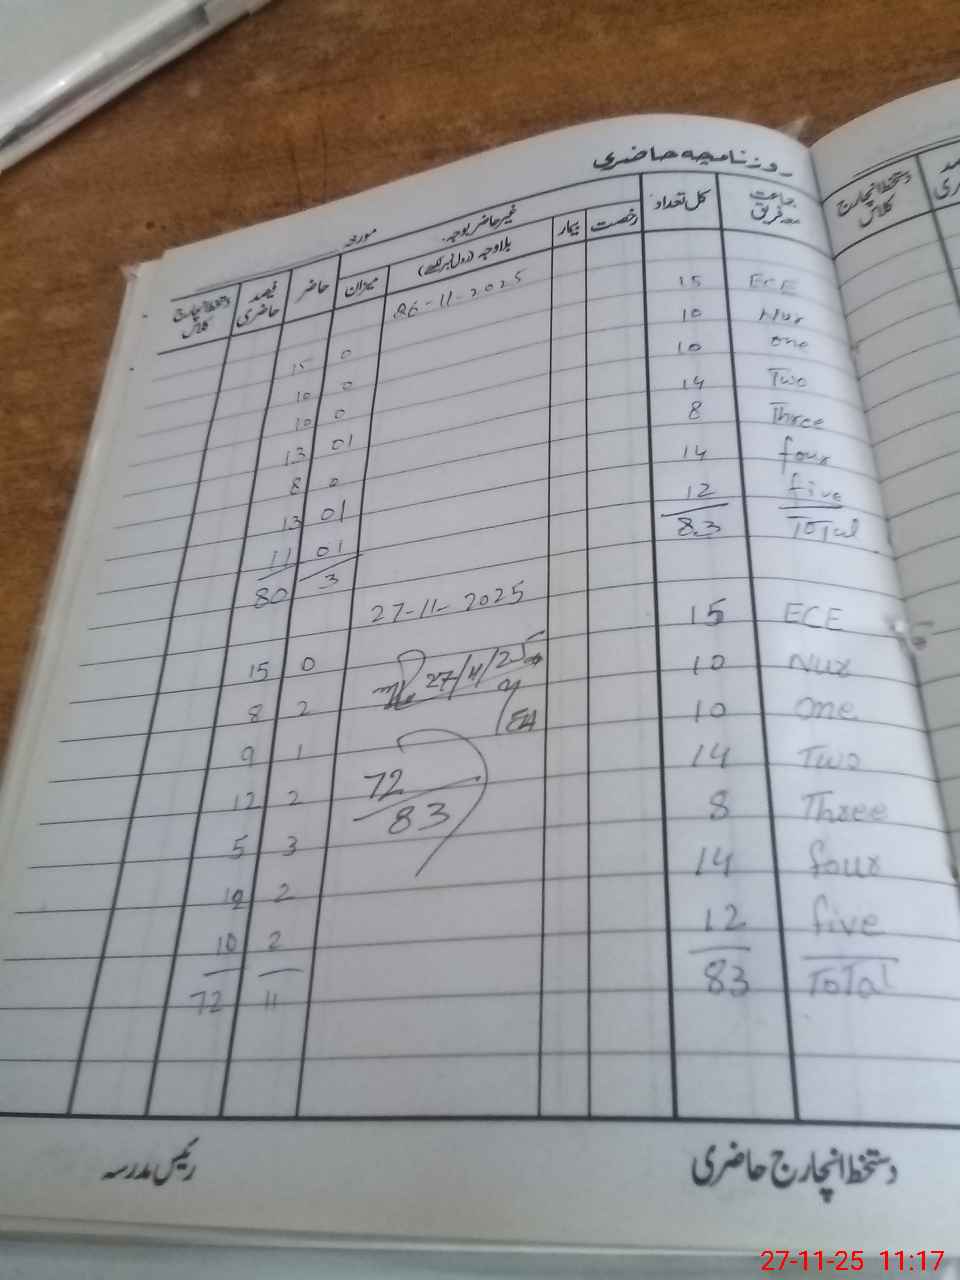 روزنامچہ حاضری
مورخہ
جماعت معہ فریق کل تعداد رخصت بیمار غیر حاضر بوجہ بلاوجہ (رول نمبر لکھیے) میزان حاضر فیصد حاضری دستخط انچارج کلاس
دستخط انچارج کلاس
26-11-2025
ECE 15 0 15
Nur 10 0 10
one 10 0 10
Two 14 01 13
Three 8 0 8
four 14 01 13
five 12 01 11
Total 83 3 80
27-11-2025
ECE 15 0 15
Nur 10 2 8
one 10 1 9
Two 14 2 12
Three 8 3 5
four 14 2 12
five 12 2 10
ToTal 83 11 72
27/11/25
72
83
دستخط انچارج حاضری رئیس مدرسہ
27-11-25 11:17